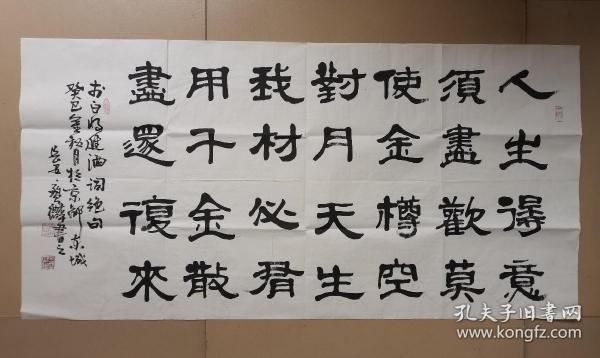 人生得意
須盡歡莫
使金樽空
對月天生
我材必有
用千金散
盡還復來
李白将進酒词絕句
癸巳金秋月於京都東城
孔夫子旧书网
www.kongfz.com